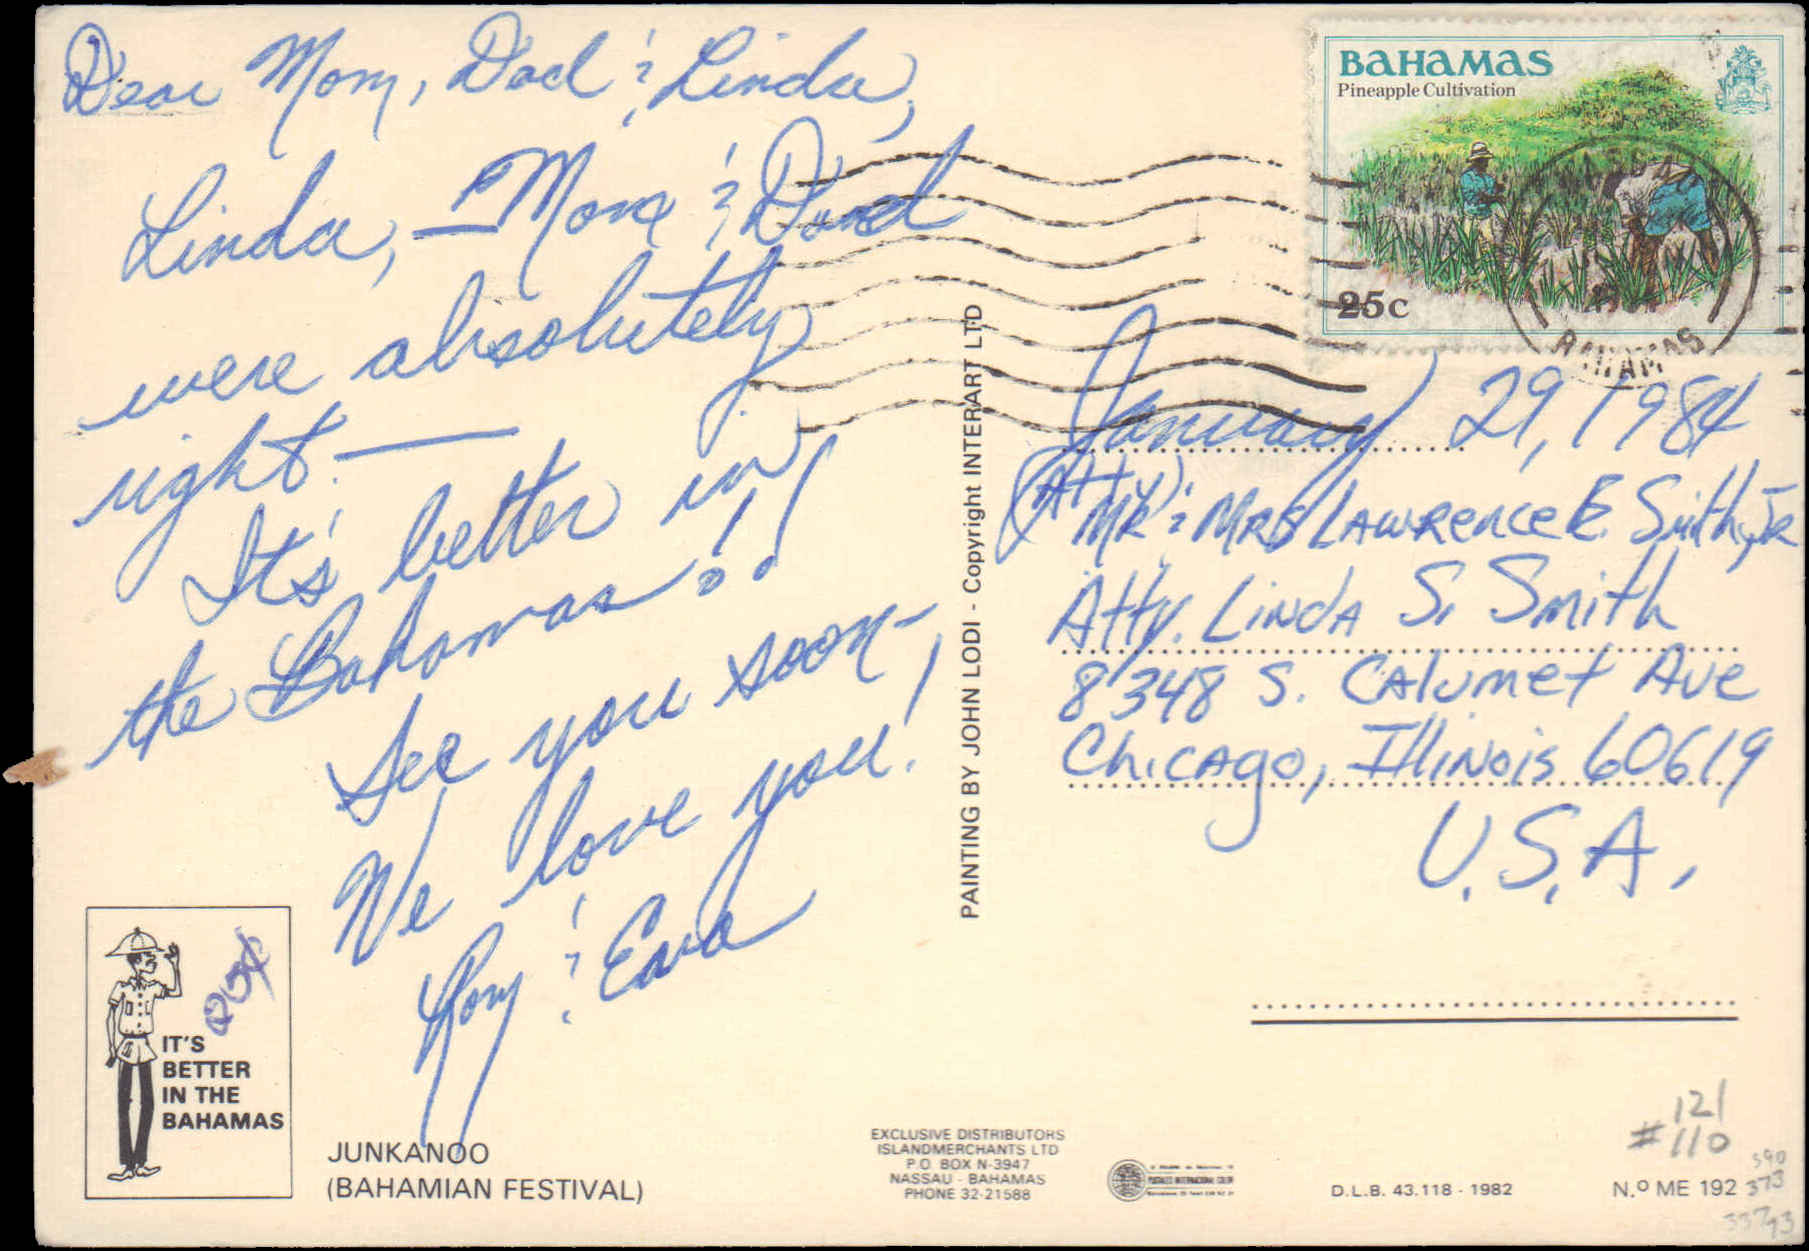 Dear Mom, Dad & Linda,
Linda, — Mom & Dad
were absolutely
right. —
It's better in
the Bahamas!!
See you soon—
We love you!
Rory & Eara
IT'S
BETTER
IN THE
BAHAMAS
25¢
JUNKANOO
(BAHAMIAN FESTIVAL)
PAINTING BY JOHN LODI - Copyright INTERART LTD
BAHAMAS
Pineapple Cultivation
25c
BAHAMAS
January 29, 1984
(Atty)
MR & MRS LAWRENCE E. Smith, JR
Atty. LINDA S. Smith
8348 S. CALUMET AVE
Chicago, ILLINOIS 60619
U.S.A.
EXCLUSIVE DISTRIBUTORS
ISLANDMERCHANTS LTD
P.O. BOX N-3947
NASSAU - BAHAMAS
PHONE 32-21588
D.L.B. 43.118 - 1982
121
#110
N.º ME 192
390
373